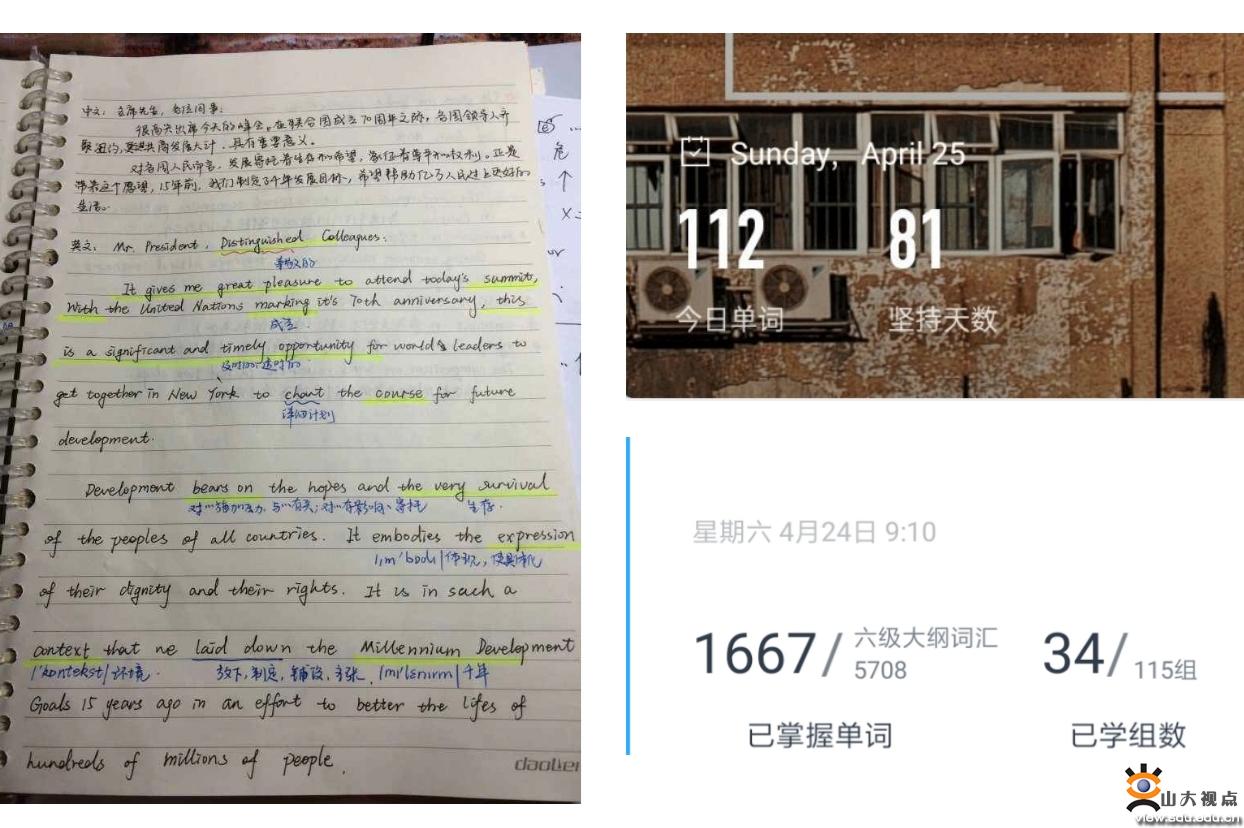 中文：主席先生，各位同事：
很高兴出席今天的峰会。在联合国成立70周年之际，各国领导人齐
聚纽约，共商发展大计，具有重要意义。
对各国人民而言，发展寄托着生存和希望，象征着尊严和权利。正是
带着这个愿望，15年前，我们制定了千年发展目标，希望帮助亿万人民过上更好的
生活。
英文：Mr. President, Distinguished Colleagues:
尊敬的
It gives me great pleasure to attend today's summit,
With the United Nations marking it's 70th anniversary, this
成立
is a significant and timely opportunity for world leaders to
及时的、适时的
get together in New York to chart the course for future
详细计划
development.
Development bears on the hopes and the very survival
对…施加压力、与…有关；对…有影响、寄托 生存.
of the peoples of all countries. It embodies the expression
体现，使具体化
of their dignity and their rights. It is in such a
context that we laid down the Millennium Development
/'kontekst/环境. 放下，制定，铺设，主张. 千年
Goals 15 years ago in an effort to better the lifes of
hundreds of millions of people.
Sunday, April 25
112 81
今日单词 坚持天数
星期六 4月24日 9:10
1667/ 六级大纲词汇 5708 34/ 115组
已掌握单词 已学组数
山大视点
view.sdu.edu.cn